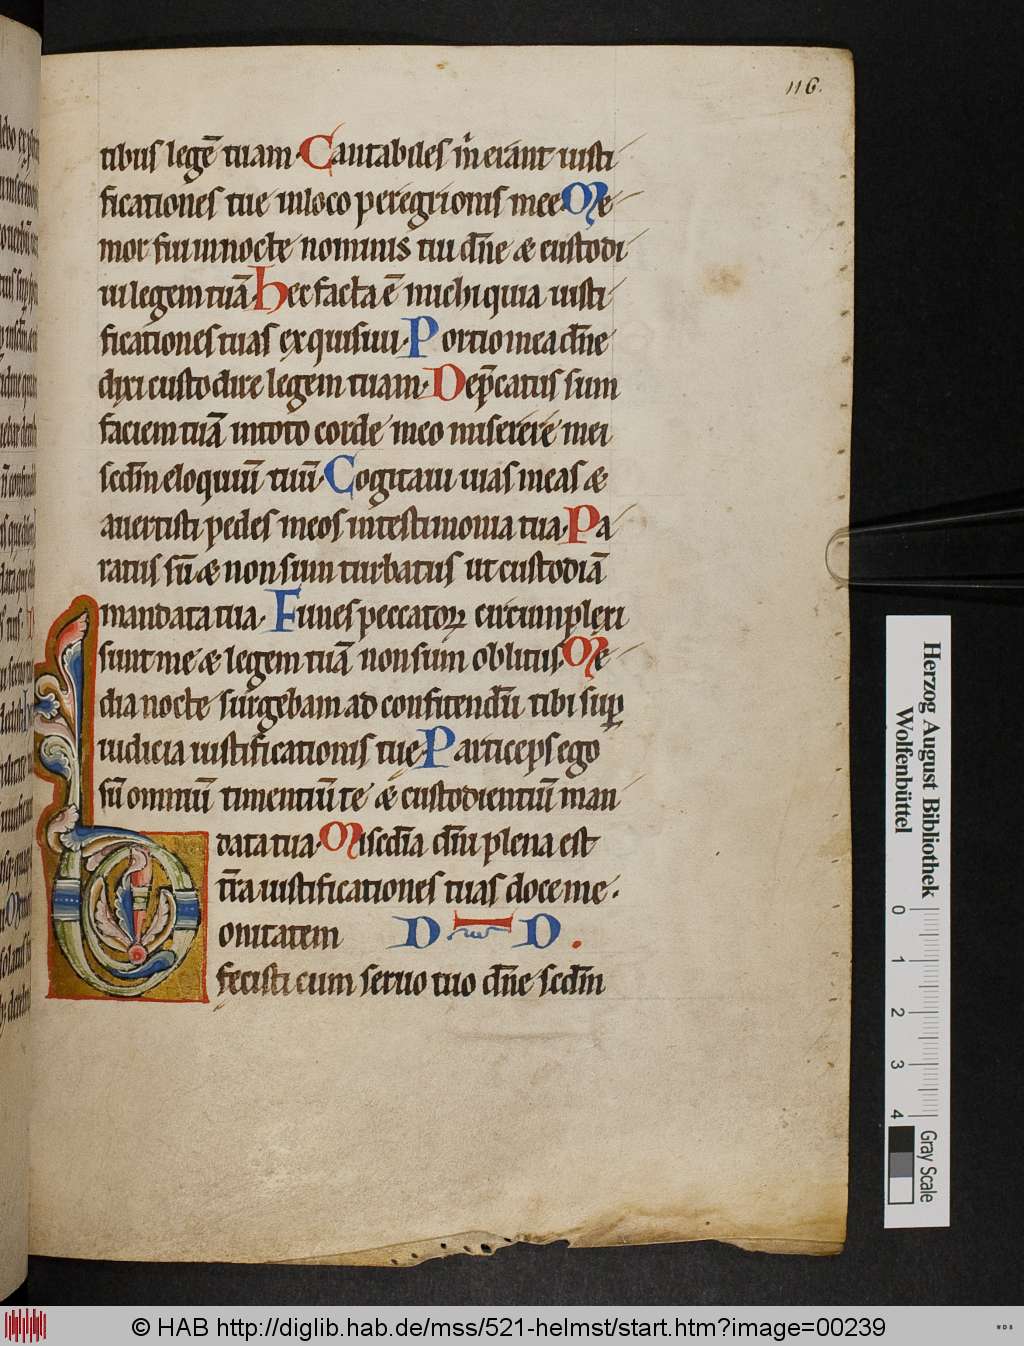 116.
tibus legē tuam. Cantabiles m̄ erant iusti
ficationes tue in loco peregrionis mee. Me
mor fui in nocte nominis tui dn̄e & custodi
ui legem tuā. Hec facta ē michi quia iusti
ficationes tuas exquisiui. Portio mea dn̄e
dixi custodire legem tuam. Dep̄catus sum
faciem tuā in toto corde meo miserere mei
scd̄m eloquiū tuū. Cogitaui uias meas &
auertisti pedes meos in testimonia tua. Pa
ratus sū & non sum turbatus ut custodiā
mandata tua. Funes peccatoꝝ circumplexi
sunt me & legem tuā non sum oblitus. Me
dia nocte surgebam ad confitendū tibi sup̱
iudicia iustificationis tuę. Particeps ego
sū omniū timentiū te & custodientiū man
data tua. Misedīa dn̄i plena est
tr̄ra iustificationes tuas doce me.
Bonitatem D D .
fecisti cum seruo tuo dn̄e scd̄m
Herzog August Bibliothek
Wolfenbüttel
0 1 2 3 4
Gray Scale
© HAB http://diglib.hab.de/mss/521-helmst/start.htm?image=00239
WDB